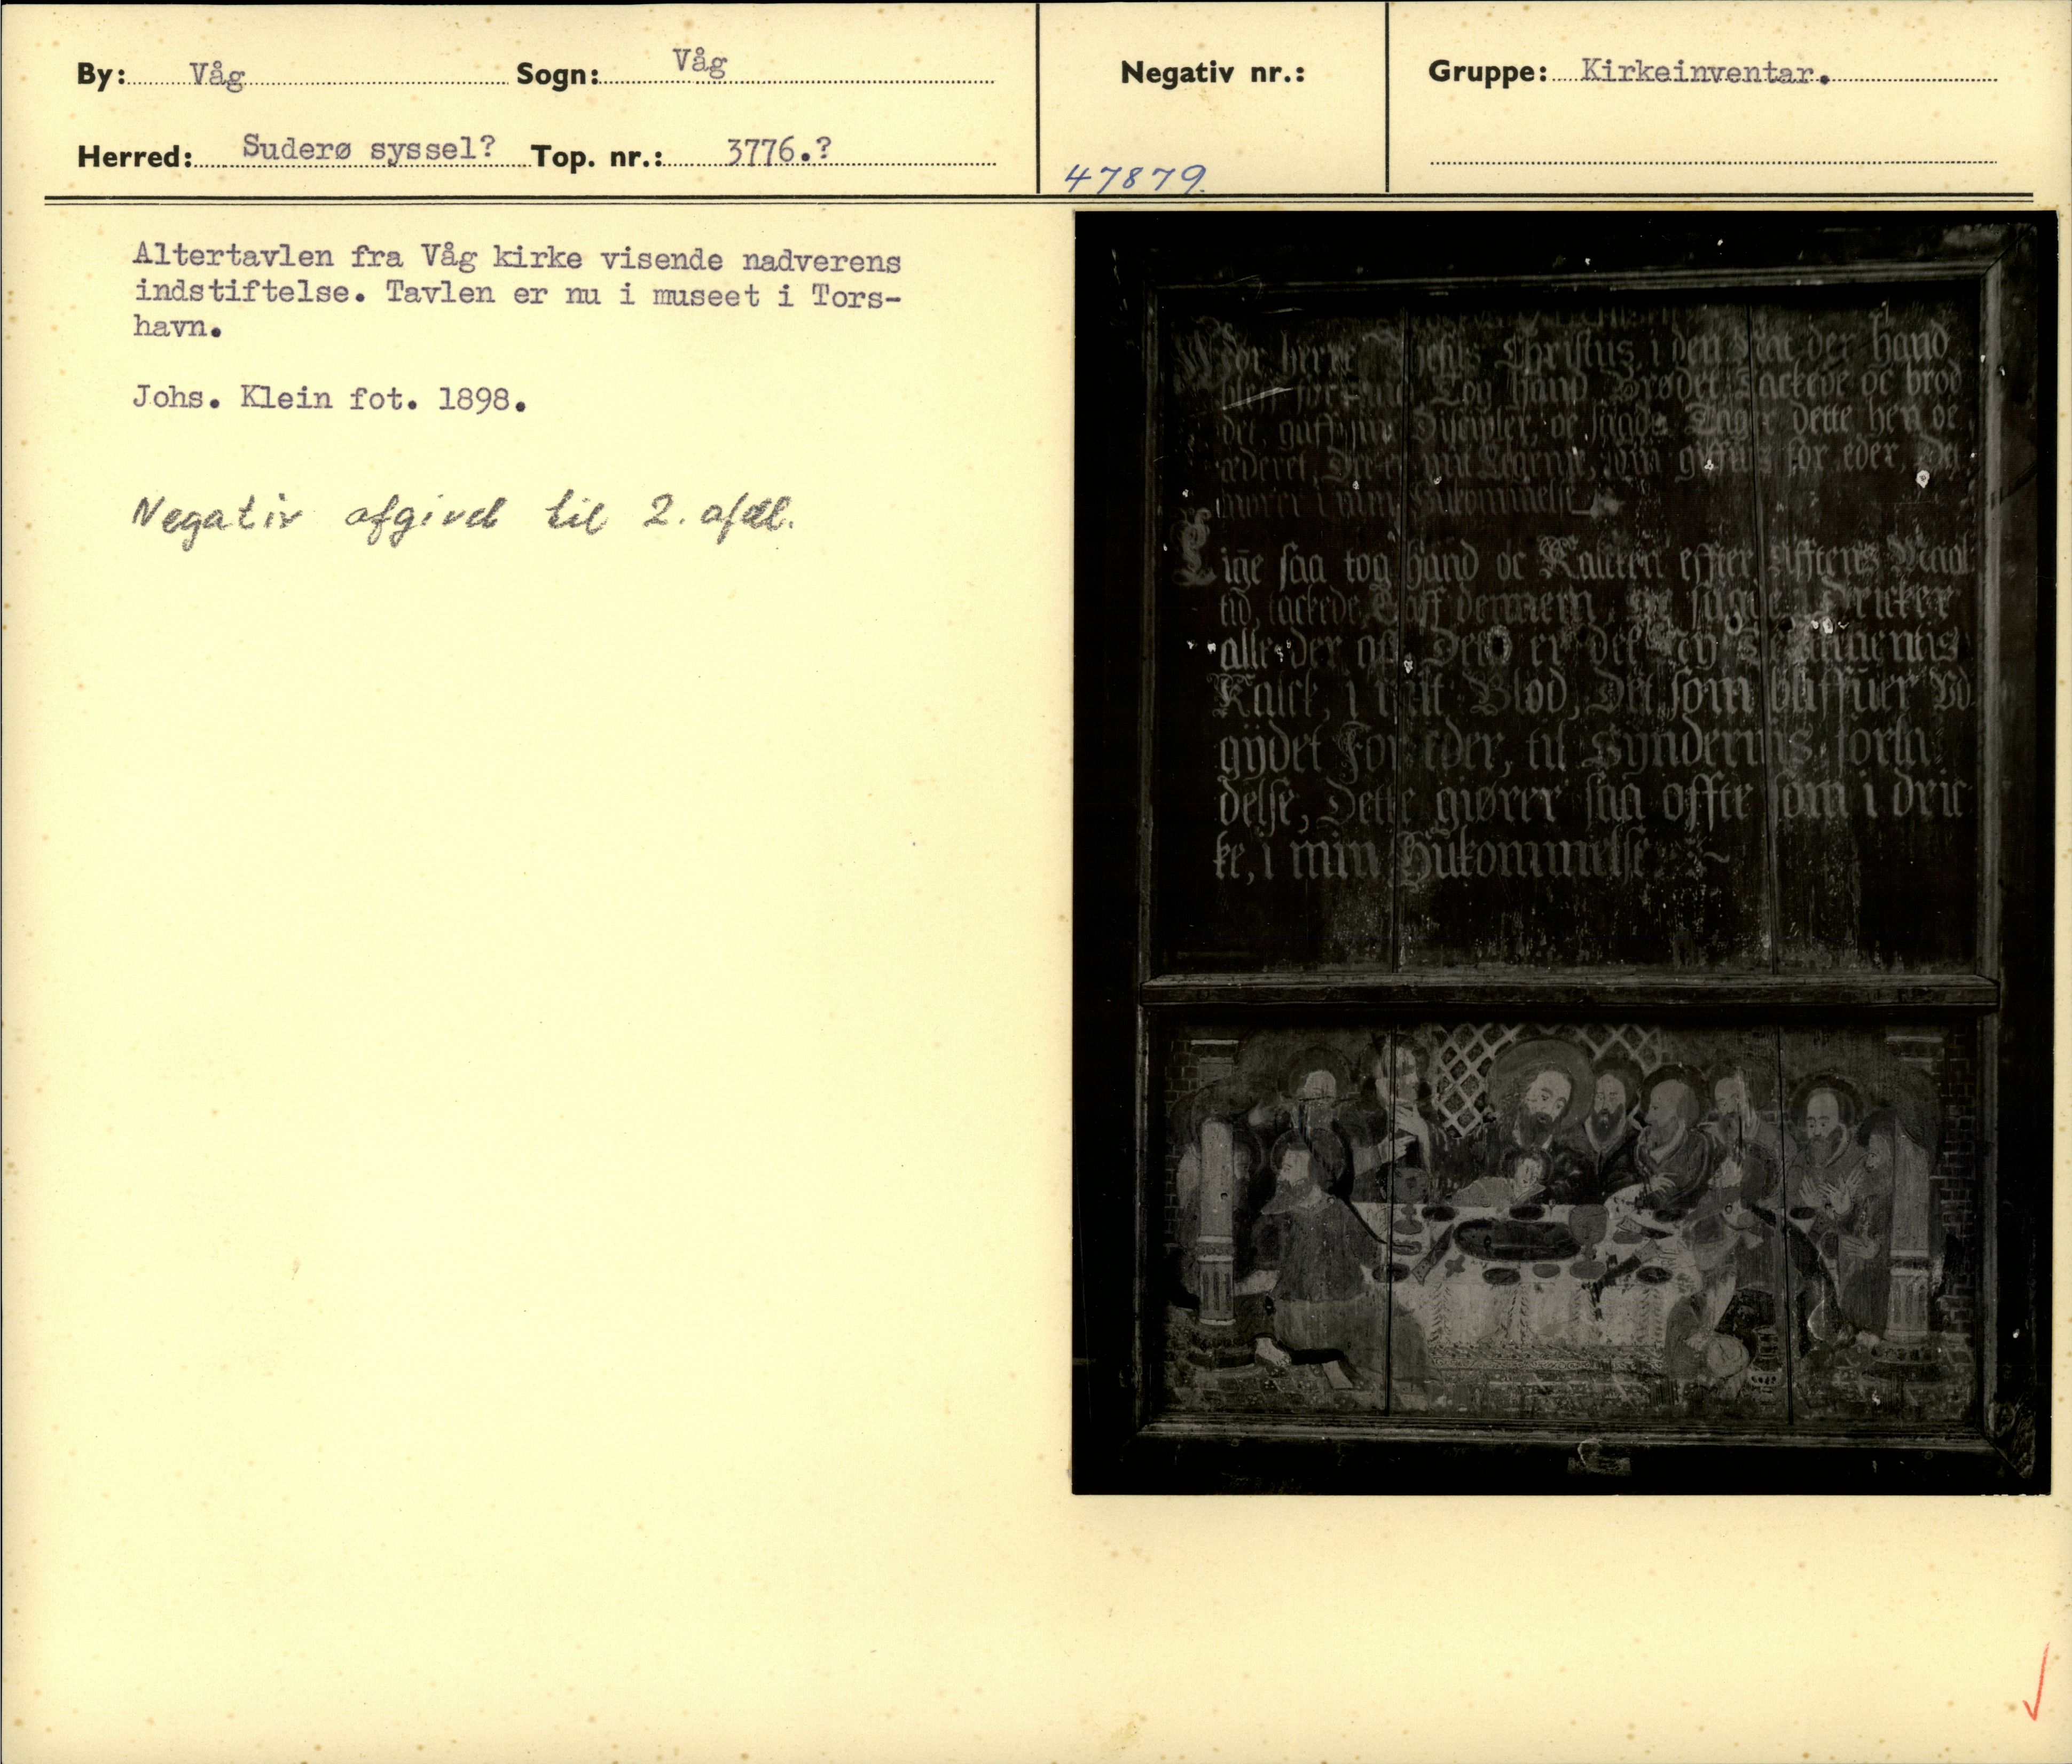 By: Våg Sogn: Våg Negativ nr.: Gruppe: Kirkeinventar.
Herred: Suderø syssel? Top. nr.: 3776.? 47879.
Altertavlen fra Våg kirke visende nadverens
indstiftelse. Tavlen er nu i museet i Tors-
havn.
Johs. Klein fot. 1898.
Negativ afgivet til 2. afdl.
Vor herre Jhesus Christus, i den Nat der hand
Tog hand Brødet Tackede oc brød
det, gaff sine Disciple, oc sagde Tager dette hen oc
æderet, Det er mit Legeme, som giffuis for eder, Det
giører i min Hukommelse
Lige saa tog hand oc Kalcken effter Afftens Maal
tid, tackede, Gaff dennem, oc sagde, Dricker
alle der aff Dette er det Ny Testamentis
Kalck, i mit Blod, Det som bliffuer Vd
gydet For eder, til Syndernis forla
delse, Dette giører saa offte som i dric
ke, i min Hukommelse